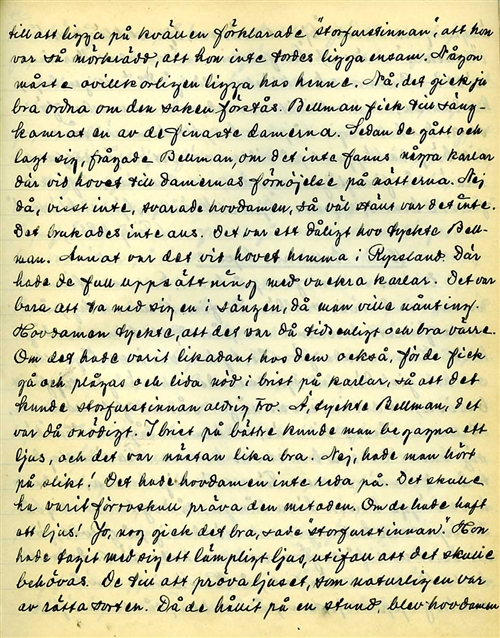 till att ligga på kvällen förklarade "storfurstinnan", att hon
var så mörkrädd, att hon inte tordes ligga ensam. Någon
måste ovillkorligen ligga hos henne. Nå, det gick ju
bra ordna om den saken förstås. Bellman fick till säng-
kamrat en av de finaste damerna. Sedan de gått och
lagt sig, frågade Bellman, om det inte fanns några karlar
där vid hovet till damernas förnöjelse på nätterna. Nej
då, visst inte, svarade hovdamen, så väl ställt var det inte.
Det brukades inte alls. Det var ett dåligt hov tyckte Bell-
man. Annat var det vid hovet hemma i Ryssland. Där
hade de full uppsättning med vackra karlar. Det var
bara att ta med sig en i sängen, då man ville nånting.
Hovdamen tyckte, att det var då tidsenligt och bra värre.
Om det hade varit likadant hos dem också, för de fick
gå och plågas och lida nöd i brist på karlar, så att det
kunde storfurstinnan aldrig tro. Å, tyckte Bellman, det
var då onödigt. I brist på bättre kunde man begagna ett
ljus, och det var nästan lika bra. Nej, hade man hört
på slikt! Det hade hovdamen inte reda på. Det skulle
ha varit förroskull pröva den metoden. Om de hade haft
ett ljus! Jo, nog gick det bra, sade "storfurstinnan." Hon
hade tagit med sig ett lämpligt ljus, utifall att det skulle
behövas. De till att prova ljuset, som naturligen var
av rätta sorten. Då de hållit på en stund, blev hovdamen